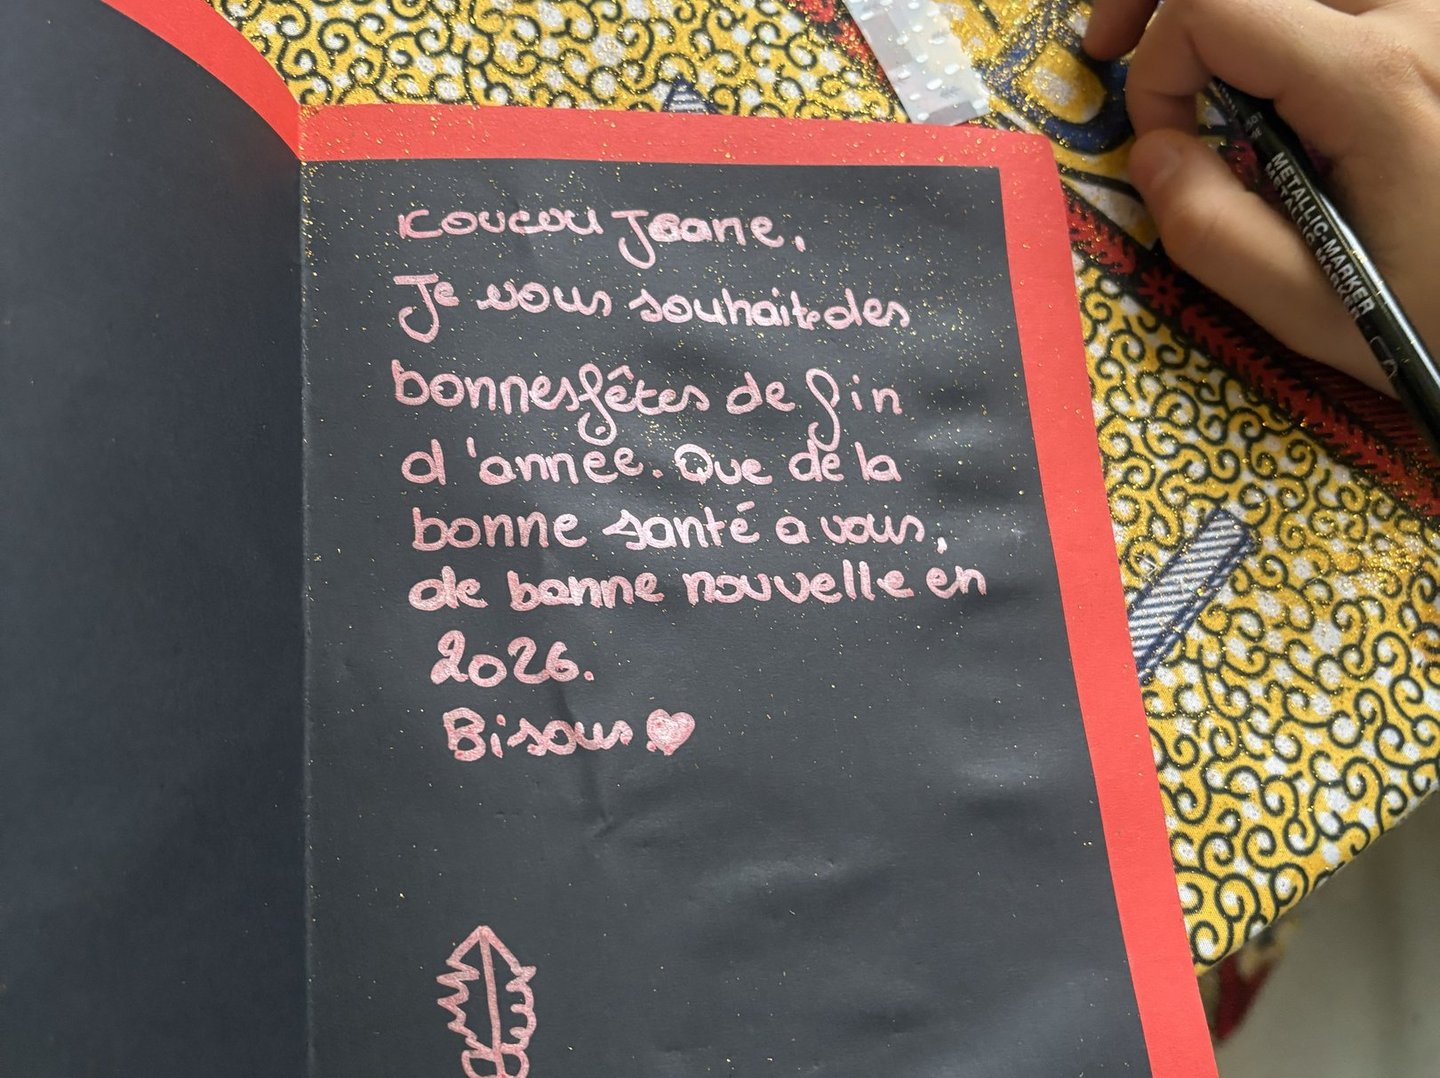 Coucou Joane,
Je vous souhaite des
bonnes fêtes de fin
d'année. Que de la
bonne santé a vous,
de bonne nouvelle en
2026.
Bisous
METALLIC-MARKER